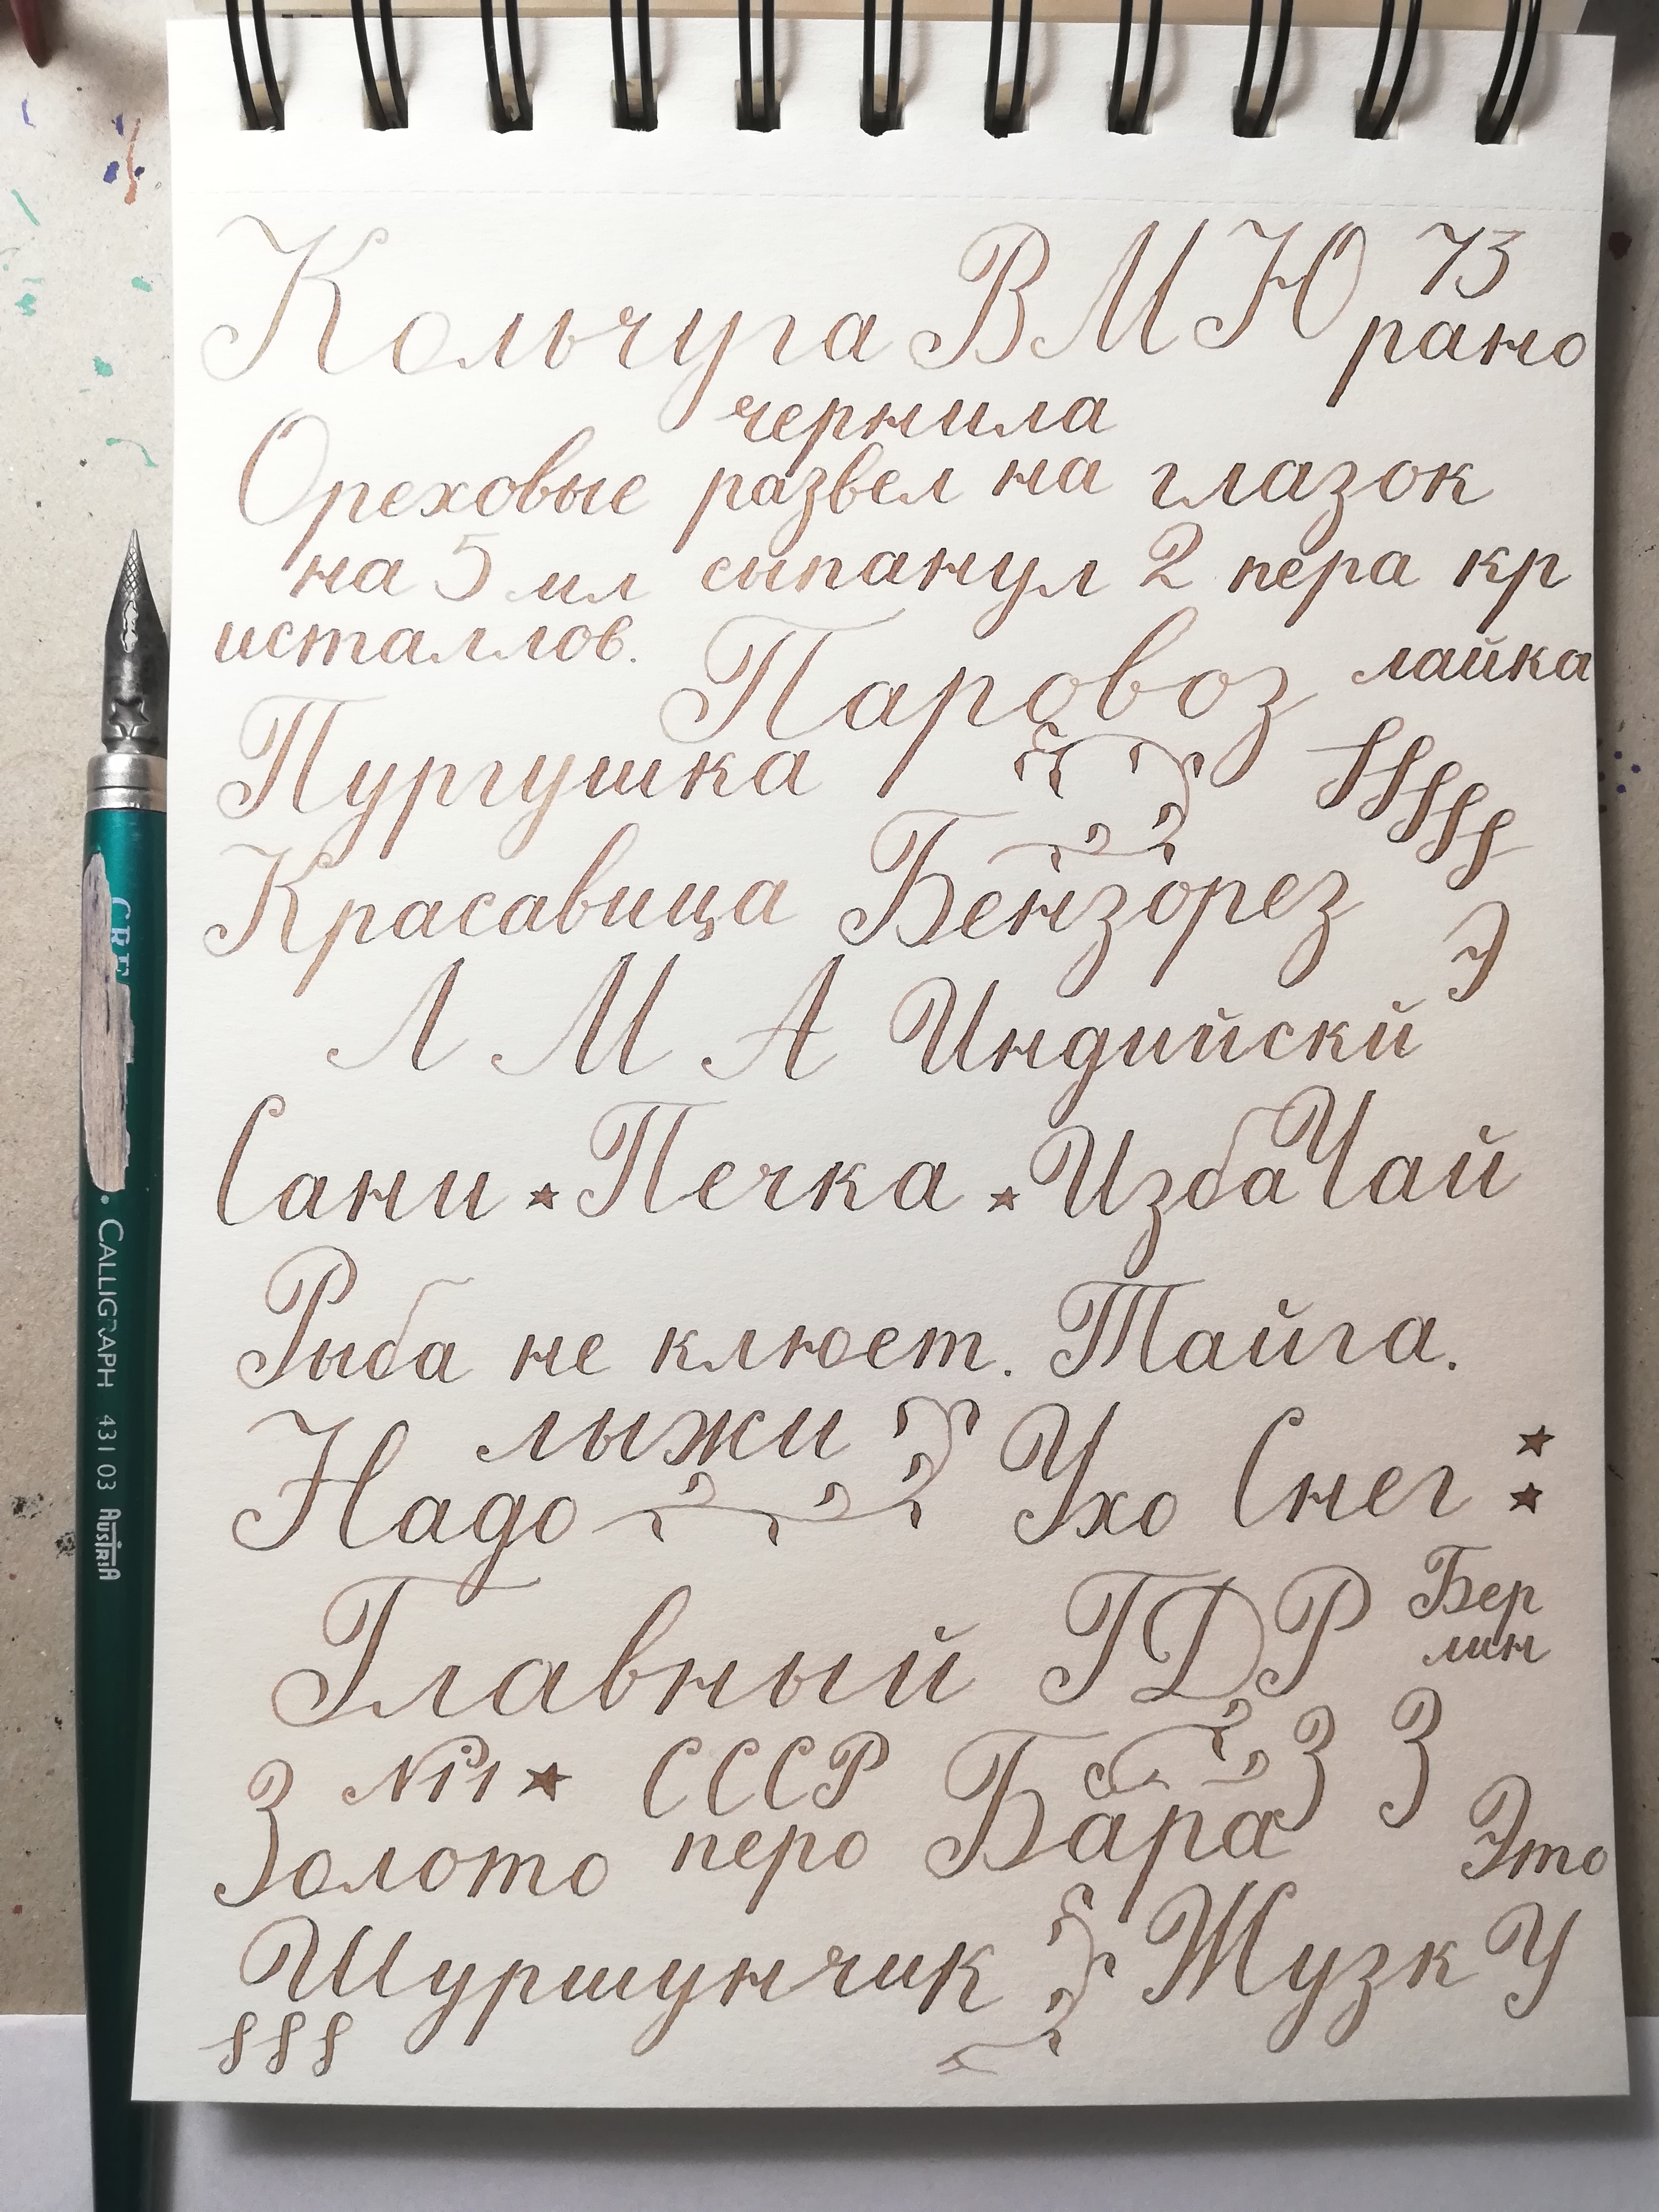 Кольчуга В М Ю 73
рано
чернила
Ореховые развел на глазок
на 5 мл сыпанул 2 пера кр
исталлов. Паровоз лайка
Пургушка
Красавица Бензорез
Э
Л М А Индийскй
Сани ★ Печка ★ Изба Чай
Рыба не клюет. Тайга.
лыжи
Надо Ухо Снег
Главный ГДР Бер
лин
№1 ★ СССР З З
Золото перо Бара Это
Шуршунчик Жузк У
CALLIGRAPH 431 03 AUSTRIA